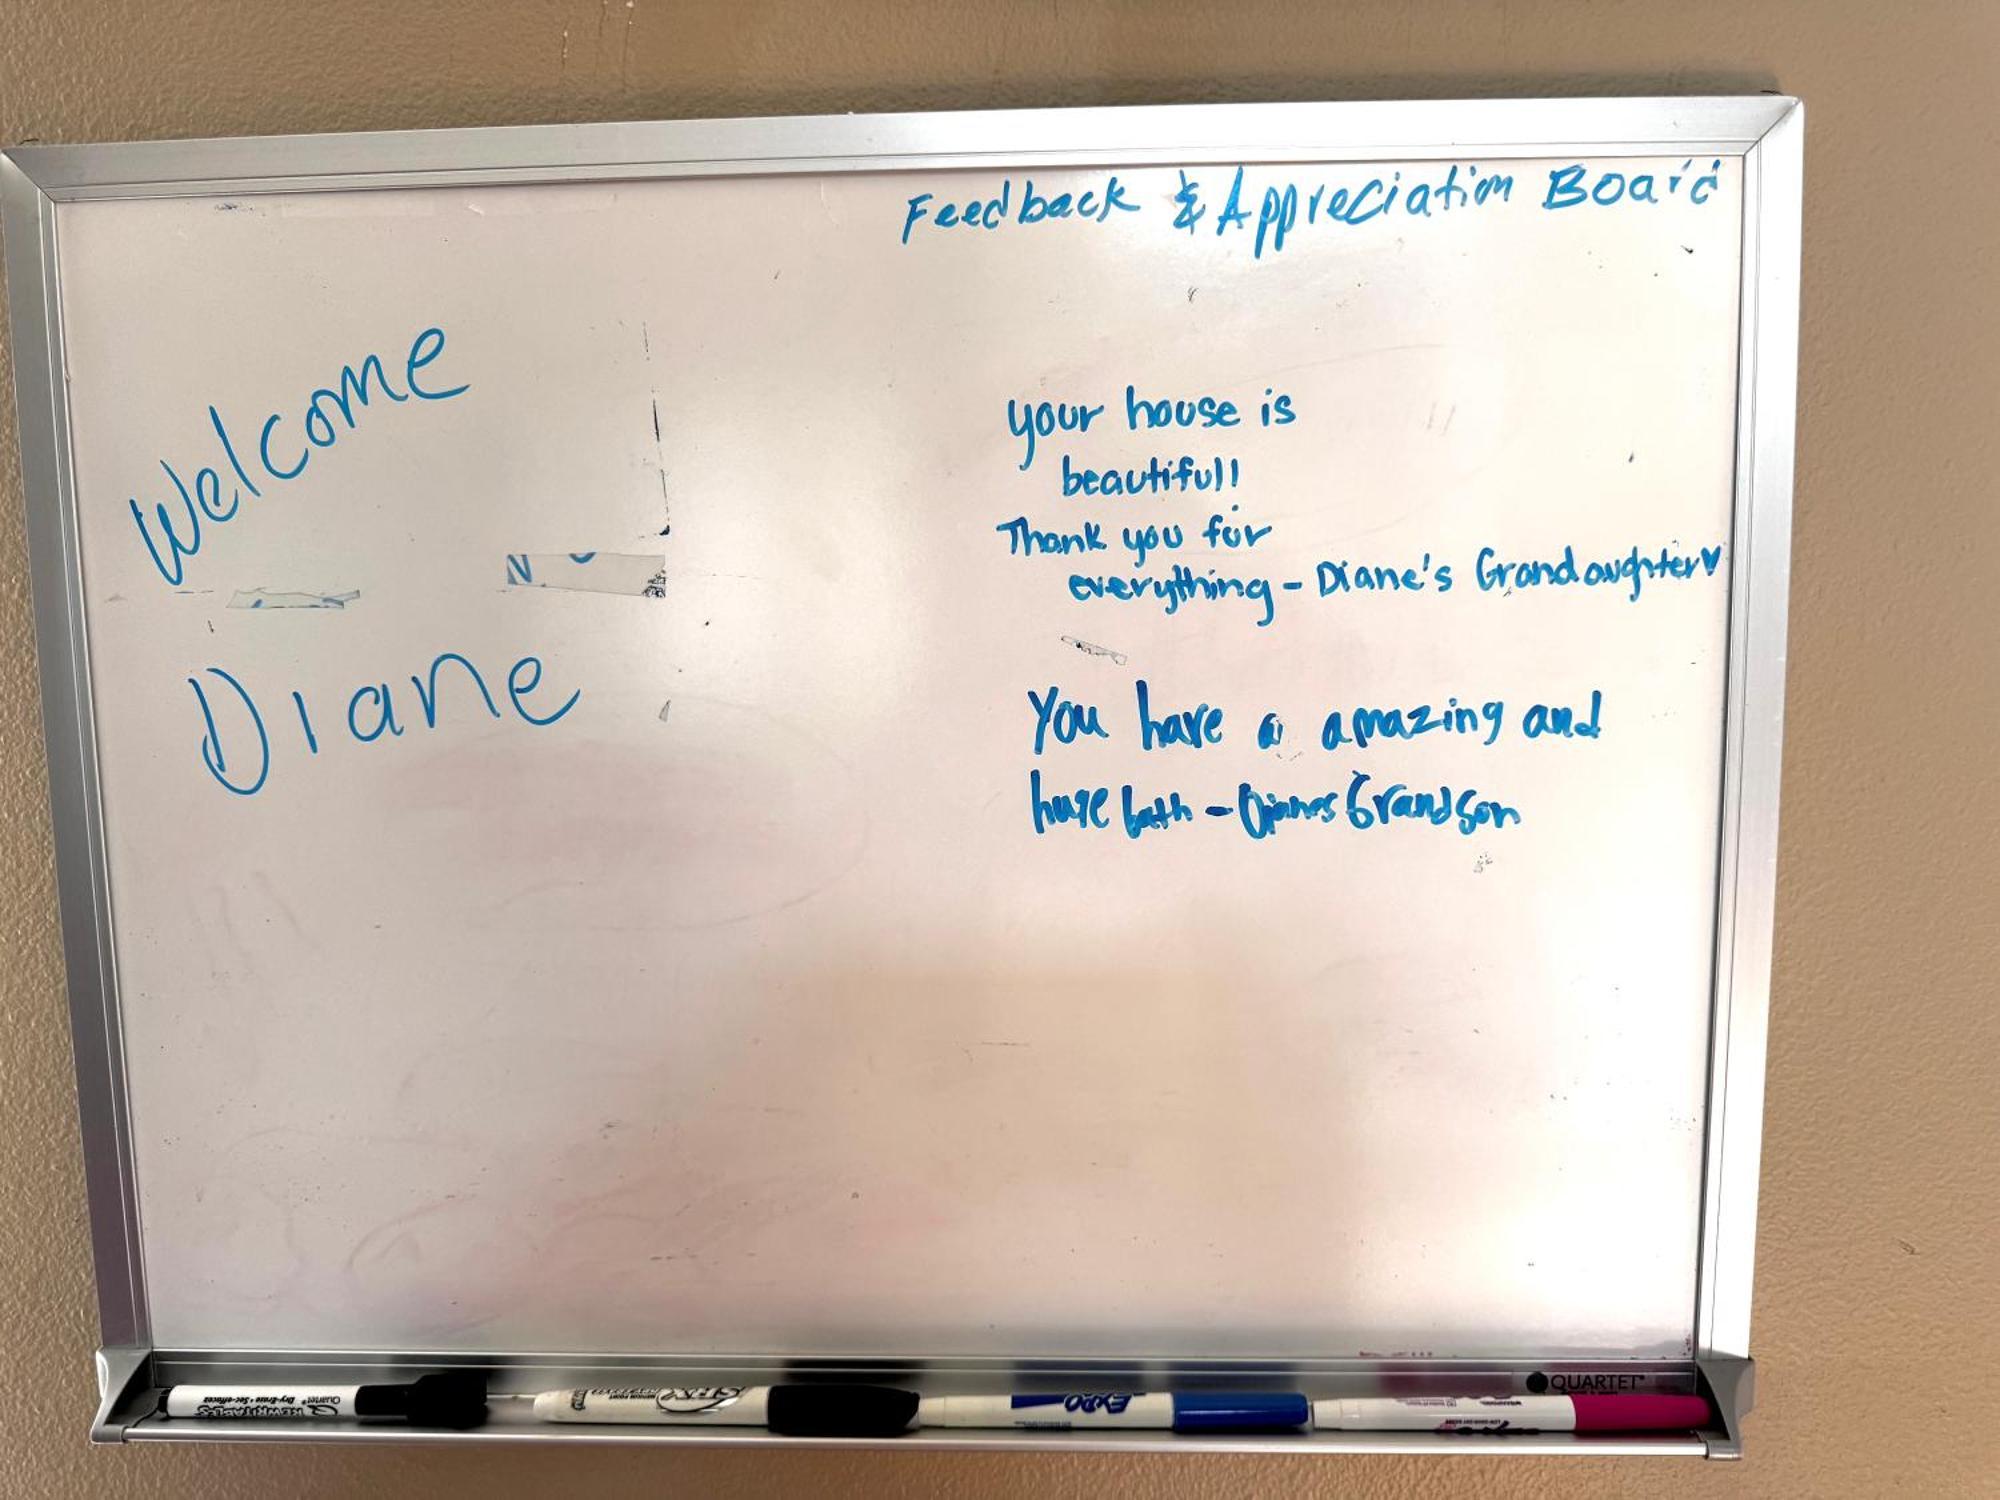 Feedback & Appreciation Board
Welcome
Diane
your house is
beautiful!
Thank you for
everything - Diane's Grandaughter♥
You have a amazing and
huge bath - Dianes Grandson
QUARTET®
Quartet®
Dry-Erase
REWRITABLES
EXPO